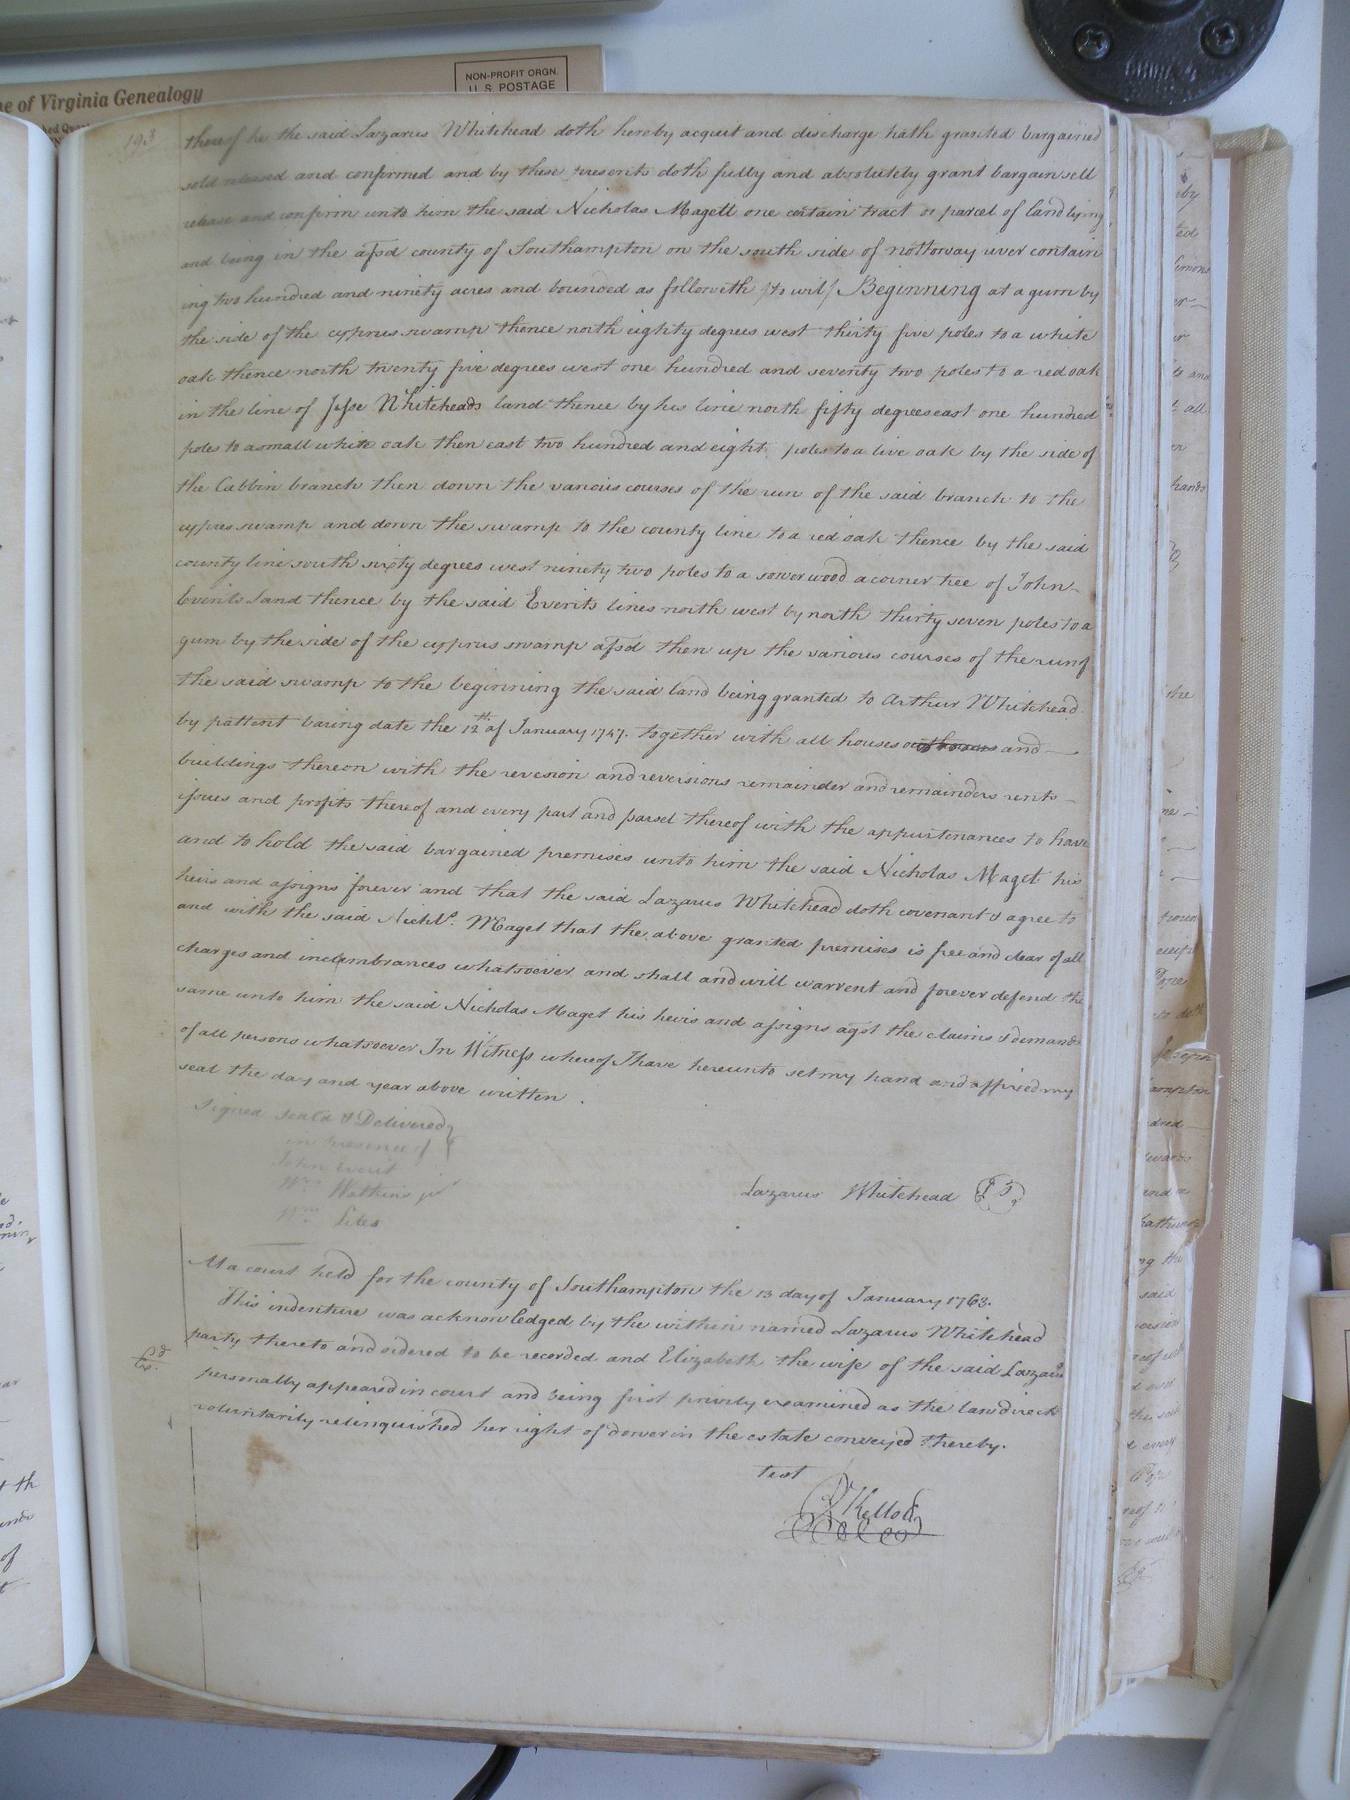 NON-PROFIT ORGN.
U.S. POSTAGE
of Virginia Genealogy
193
thereof he the said Lazarus Whitehead doth hereby acquit and discharge hath granted bargained
sold released and confirmed and by these presents doth fully and absolutely grant bargain sell
release and confirm unto him the said Nicholas Magett one certain tract or parcel of land lying
and being in the afsd county of Southampton on the south side of nottoway river contain
ing two hundred and ninety acres and bounded as followeth /to wit/ Beginning at a gum by
the side of the cyprus swamp thence north eighty degrees west thirty five poles to a white
oak thence north twenty five degrees west one hundred and seventy two poles to a red oak
in the line of Jesse Whiteheads land thence by his line north fifty degrees east one hundred
poles to a small white oak then east two hundred and eight poles to a live oak by the side of
the Cabbin branch then down the various courses of the run of the said branch to the
cypres swamp and down the swamp to the county line to a red oak thence by the said
county line south sixty degrees west ninety two poles to a sower wood a corner tree of John
Everits land thence by the said Everits lines north west by north thirty seven poles to a
gum by the side of the cyprus swamp afsd then up the various courses of the run of
the said swamp to the beginning the said land being granted to Arthur Whitehead
by pattent baring date the 12th of January 1747. together with all houses outhouses and
buildings thereon with the revesion and reversions remainder and remainders rents
issues and profits thereof and every part and parsel thereof with the appurtenances to have
and to hold the said bargained premises unto him the said Nicholas Maget his
heirs and assigns forever and that the said Lazarus Whitehead doth covenant & agree to
and with the said Nichls. Maget that the above granted premises is free and clear of all
charges and incumbrances whatsoever and shall and will warrent and forever defend the
same unto him the said Nicholas Maget his heirs and assigns agst the claims & demands
of all persons whatsoever In Witness whereof I have hereunto set my hand and affixed my
seal the day and year above written.
Signed Seald & Delivered
in presence of
John Everit
Wm Watkins jr
Wm Liles
Lazarus Whitehead
At a court held for the county of Southampton the 13 day of January 1763.
This indenture was acknowledged by the within named Lazarus Whitehead
party thereto and ordered to be recorded and Elizabeth the wife of the said Lazarus
personally appeared in court and being first privily examined as the law directs
voluntarily relinquished her right of dower in the estate conveyed thereby.
Exd.
test